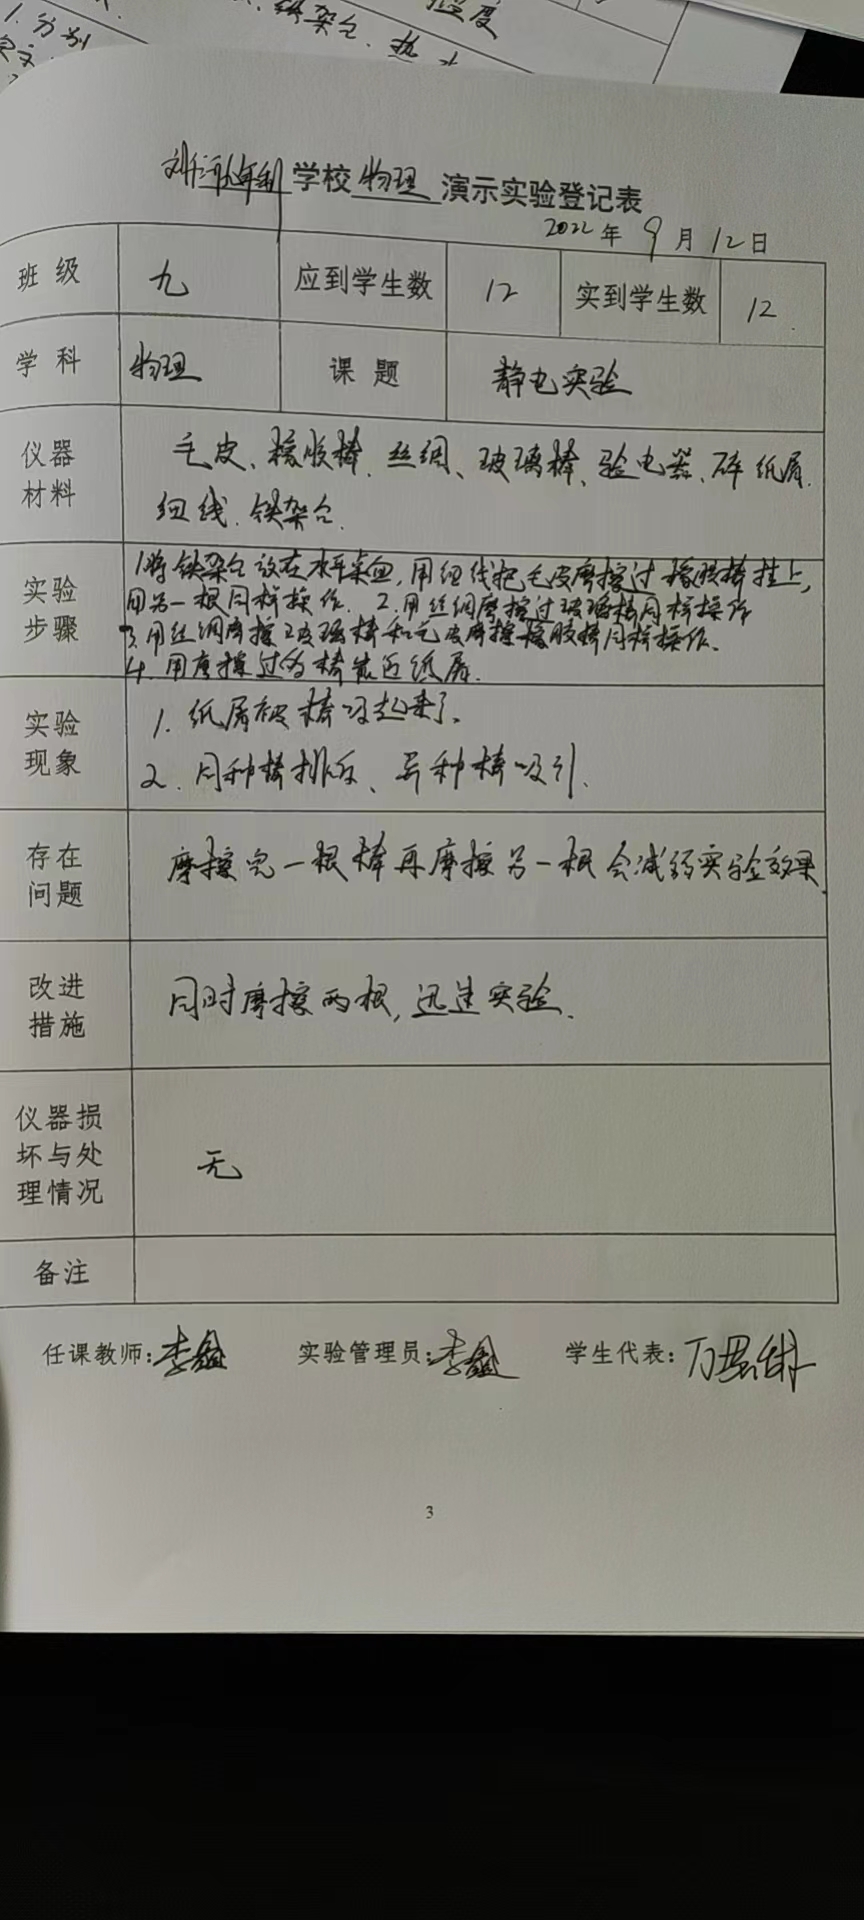 1. 分别
铁架台、热水
刘仁河九年制学校物理演示实验登记表
2022年9月12日
班级 九 应到学生数 12 实到学生数 12
学科 物理 课题 静电实验
仪器材料
毛皮、橡胶棒、丝绸、玻璃棒、验电器、碎纸屑.
细线、铁架台.
实验步骤
1.将铁架台放在水平桌面,用细线把毛皮摩擦过橡胶棒挂上,
用另一根同样操作. 2.用丝绸摩擦过玻璃棒同样操作
3.用丝绸摩擦过玻璃棒和毛皮摩擦橡胶棒同样操作.
4.用摩擦过的棒靠近纸屑.
实验现象
1. 纸屑被棒吸起来了.
2. 同种棒排斥、异种棒吸引.
存在问题
摩擦完一根棒再摩擦另一根会减弱实验效果.
改进措施
同时摩擦两根,迅速实验.
仪器损坏与处理情况
无
备注
任课教师:李鑫 实验管理员:李鑫 学生代表:万
3